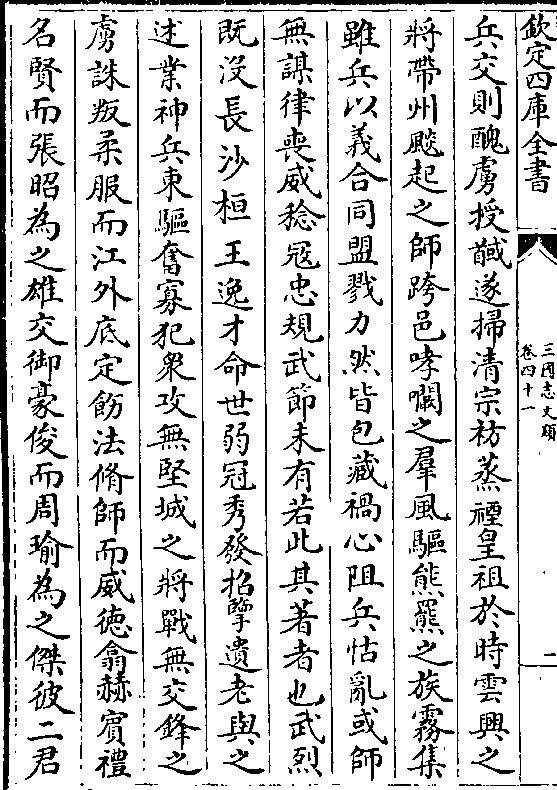 欽定四庫全書
三國志文類
卷四十一
一
兵交則醜虜授馘遂掃清宗祊蒸禋皇祖於時雲興之
將帶州飈起之師跨邑哮㘚之羣風驅熊羆之族霧集
雖兵以義合同盟戮力然皆包藏禍心阻兵怙亂或師
無謀律喪威稔冦忠規武節未有若此其著者也武烈
既沒長沙桓王逸才命世弱冠秀發招擥遺老與之
述業神兵東驅奮寡犯衆攻無堅城之將戰無交鋒之
虜誅叛柔服而江外底定飭法脩師而威德翕赫賓禮
名賢而張昭為之雄交御豪俊而周瑜為之傑彼二君